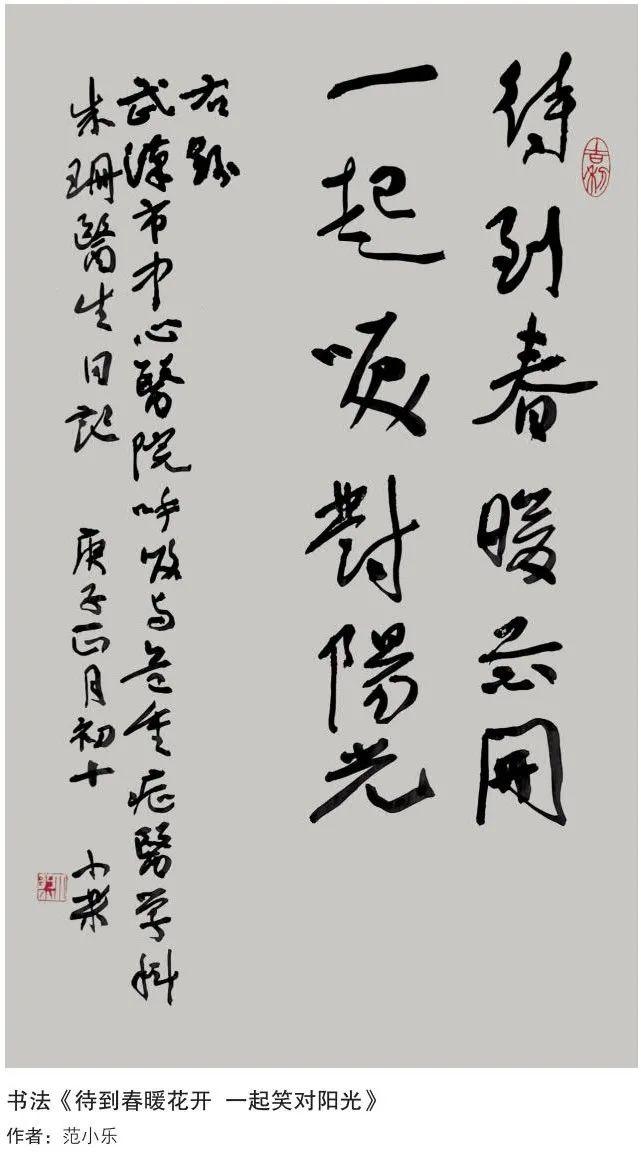 待到春暖花開
一起咲對陽光
右録
武漢市中心醫院呼吸与危重症醫学科
朱珊醫生日記 庚子正月初十 小樂
吉利
书法《待到春暖花开 一起笑对阳光》
作者：范小乐